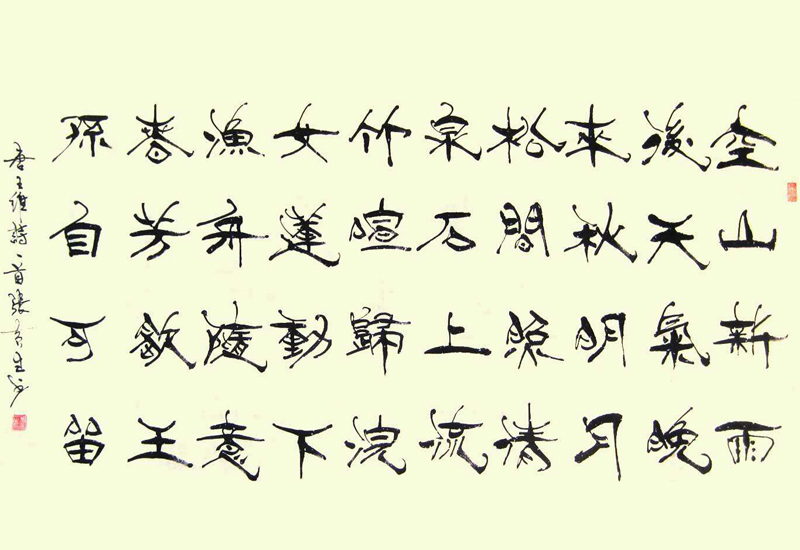 空山新雨
後天氣晚
來秋明月
松間照清
泉石上流
竹喧歸浣
女蓮動下
漁舟隨意
春芳歇王
孫自可留
唐王維詩一首張生書